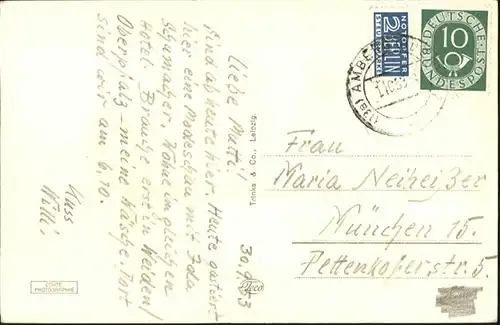 30.9.53
Liebe Mutti!
Sind ab heute hier. Heute gastiert
hier eine Modeschau mit Ida
Schumacher, wohne im gleichen
Hotel. Brautpe ersein Weiden/
Oberpfalz - meine Wäsche. Dort
sind wir am 6.10.
Kuss
Willi.
Trinks & Co., Leipzig.
Trico
ECHTE
PHOTOGRAPHIE
NOTOPFER
2 BERLIN
STEUERMARKE
DEUTSCHE
BUNDESPOST
10
(13a) AMBERG
Frau
Maria Neiheißer
München 15.
Pettenkoferstr. 5